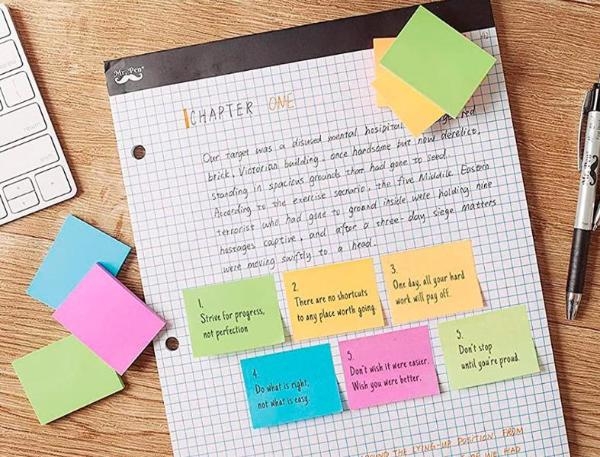 Mr. Pen
CHAPTER ONE
Our target was a disused mental hospital
brick, Victorian building, once handsome but now derelict,
standing in spacious grounds that had gone to seed.
According to the exercise scenario, the five Middle Eastern
terrorist who had gone to ground inside were holding nine
hostages captive, and after a three-day siege matters
were moving swiftly to a head.
1.
Strive for progress,
not perfection
2.
There are no shortcuts
to any place worth going.
3.
One day, all your hard
work will pay off.
4.
Do what is right,
not what is easy.
5.
Don't wish it were easier.
Wish you were better.
5.
Don't stop
until you're proud.
THE LYING-UP POSITION. FROM
HAD